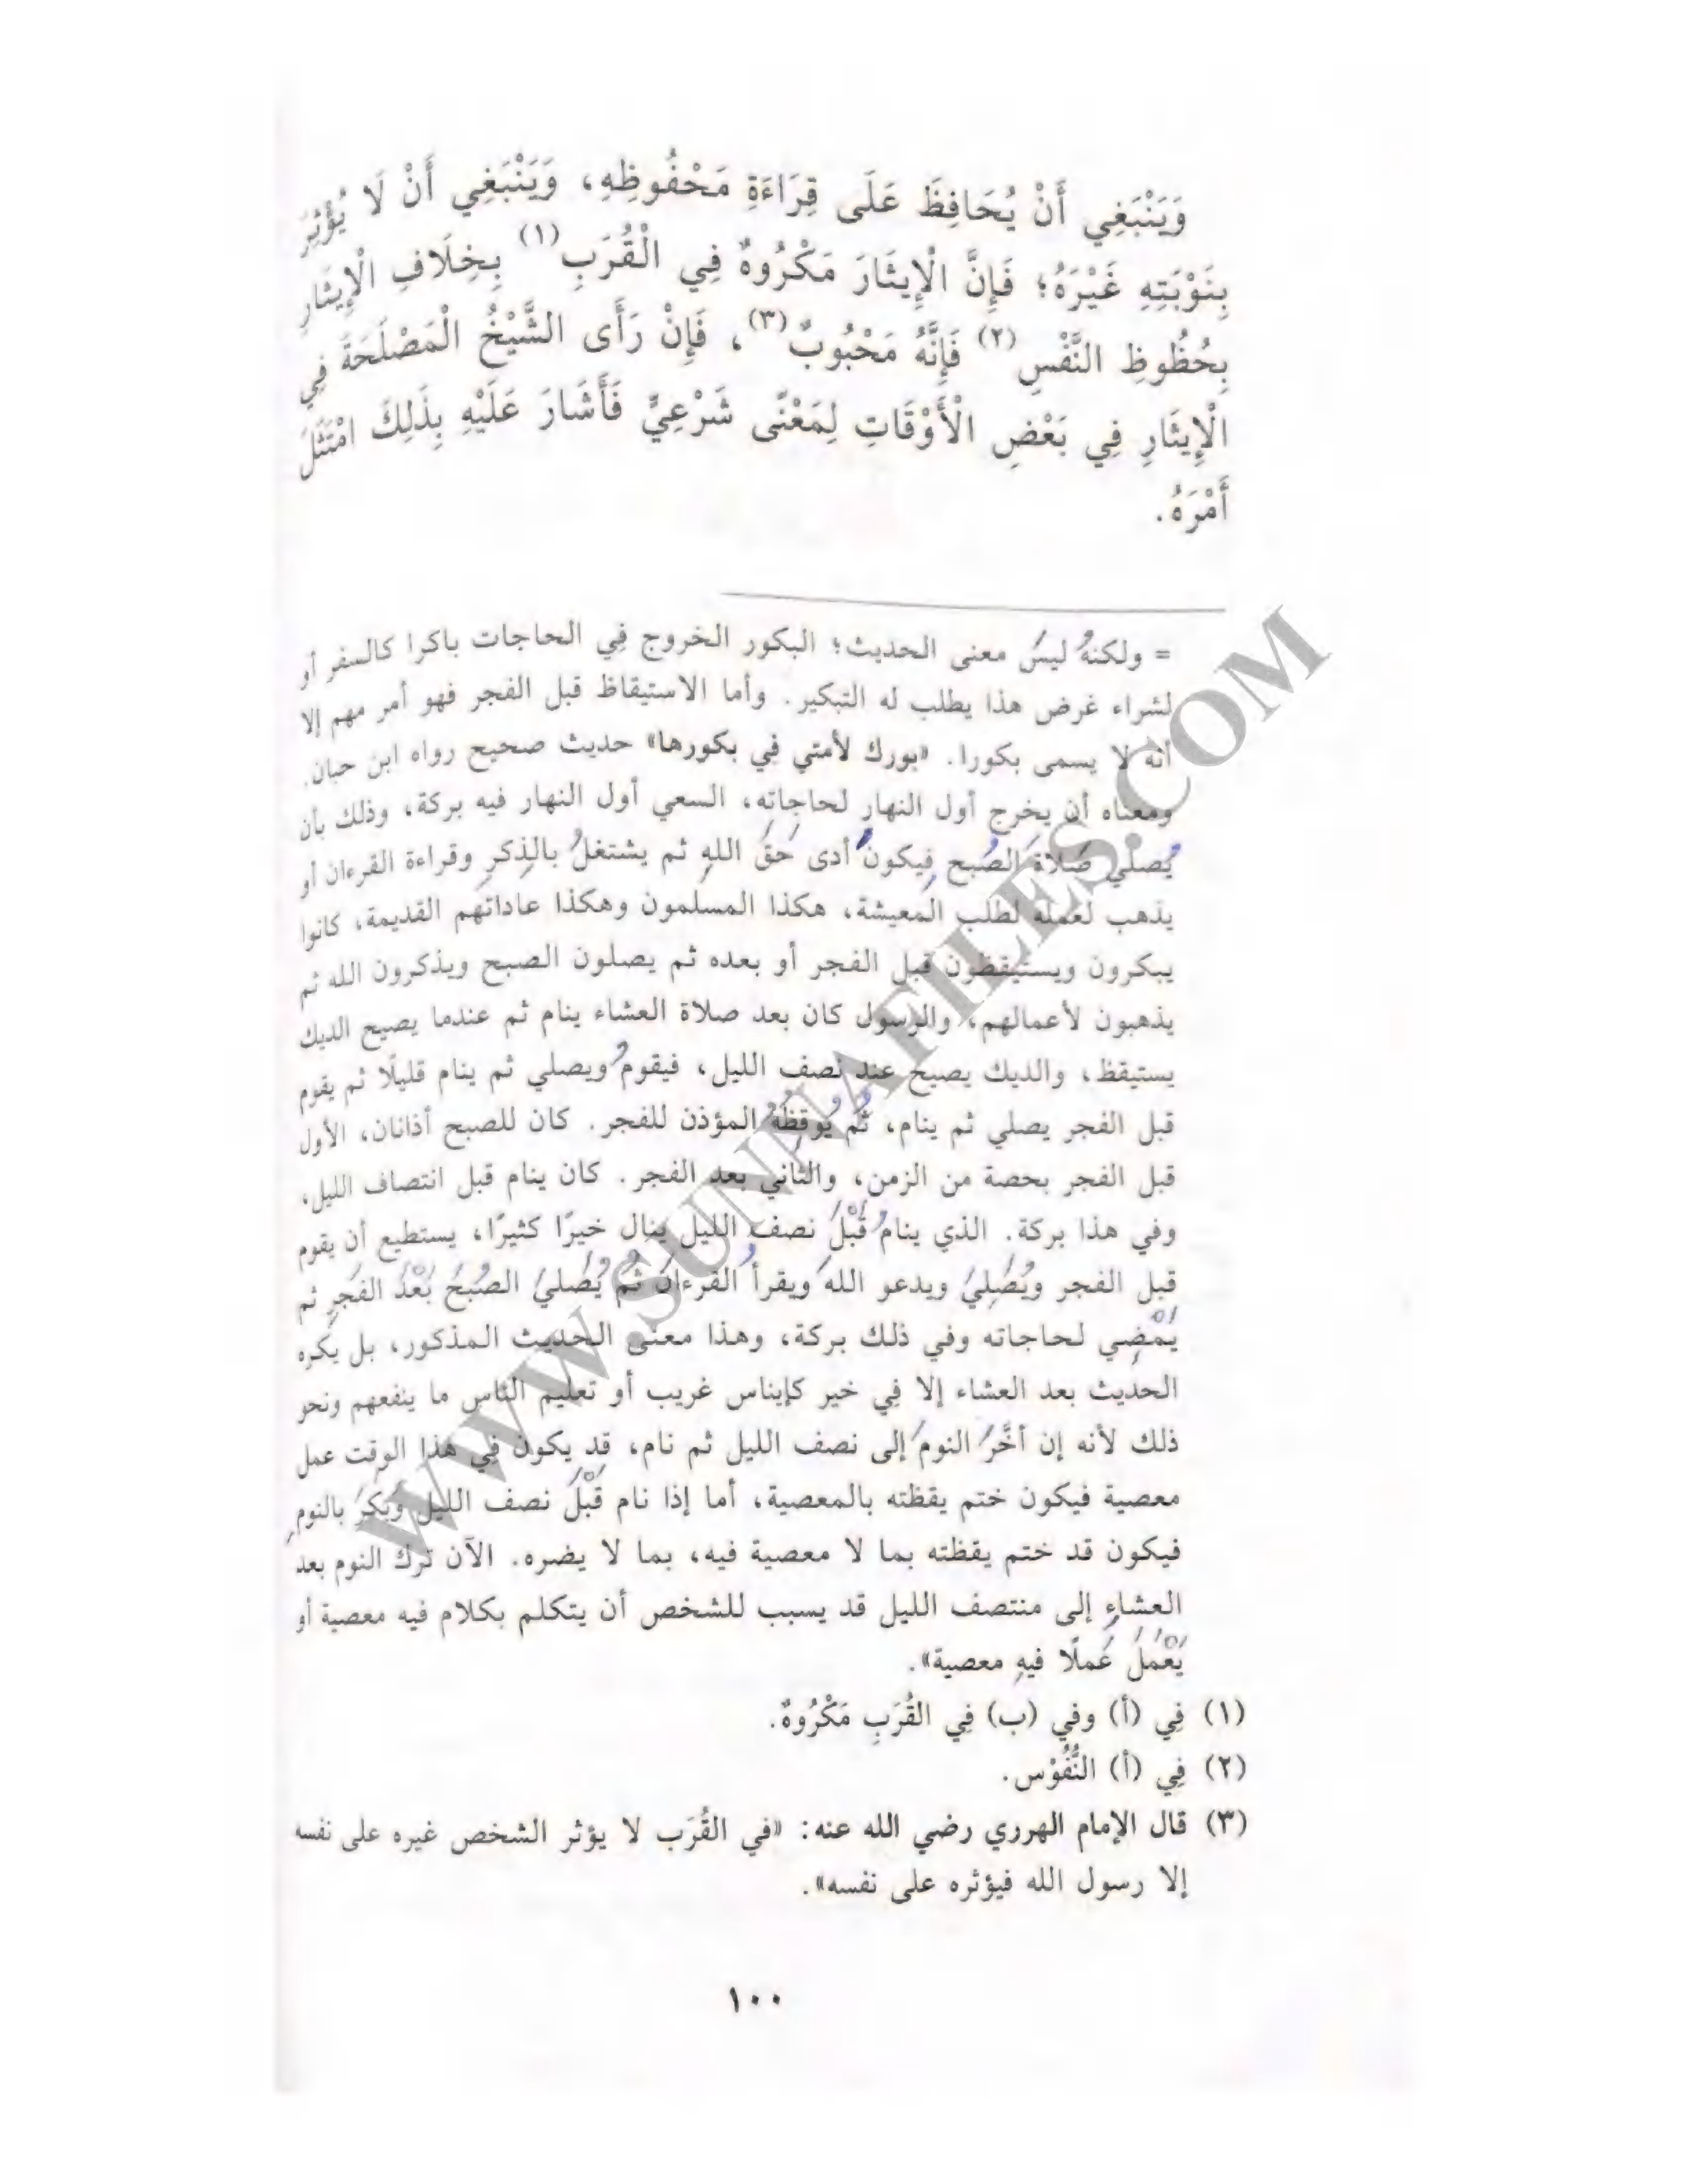 وَيَنْبَغِي أَنْ يُحَافِظَ عَلَى قِرَاءَةِ مَحْفُوظِهِ، وَيَنْبَغِي أَنْ لَا يُؤْثِرَ
بِنَوْبَتِهِ غَيْرَهُ؛ فَإِنَّ الْإِيثَارَ مَكْرُوهٌ فِي الْقُرَبِ(١) بِخِلَافِ الْإِيثَارِ
بِحُظُوظِ النَّفْسِ(٢) فَإِنَّهُ مَحْبُوبٌ(٣)، فَإِنْ رَأَى الشَّيْخُ الْمَصْلَحَةَ فِي
الْإِيثَارِ فِي بَعْضِ الْأَوْقَاتِ لِمَعْنًى شَرْعِيٍّ فَأَشَارَ عَلَيْهِ بِذَلِكَ امْتَثَلَ
أَمْرَهُ.
= ولكنهُ ليسَ معنى الحديث؛ البكور الخروج فِي الحاجات باكرا كالسفر أو
لشراء غرض هذا يطلب له التبكير. وأما الاستيقاظ قبل الفجر فهو أمر مهم إلا
أنه لا يسمى بكورا. «بورك لأمتي فِي بكورها» حديث صحيح رواه ابن حبان.
ومعناه أن يخرج أول النهار لحاجاته، السعي أول النهار فيه بركة، وذلك بأن
يُصلي صَلاةَ الصُبح فيكونُ أدى حَقَ اللهِ ثم يشتغلُ بالذِكرِ وقراءة القرءان أو
يذهب لعمله لطلبِ المعيشة، هكذا المسلمون وهكذا عاداتهم القديمة، كانوا
يبكرون ويستيقظون قبل الفجر أو بعده ثم يصلون الصبح ويذكرون الله ثم
يذهبون لأعمالهم، والرسول كان بعد صلاة العشاء ينام ثم عندما يصيح الديك
يستيقظ، والديك يصيح عند نصف الليل، فيقومُ ويصلي ثم ينام قليلًا ثم يقوم
قبل الفجر يصلي ثم ينام، ثُم يُوقِظُهُ المؤذن للفجر. كان للصبح أذانان، الأول
قبل الفجر بحصة من الزمن، والثاني بعد الفجر. كان ينام قبل انتصاف الليل،
وفي هذا بركة. الذي ينامُ قَبْلَ نصف الليل ينال خيرًا كثيرًا، يستطيع أن يقوم
قبل الفجر ويُصَلِيَ ويدعو اللهَ ويقرأُ القرءانَ ثُم يُصَليَ الصُبحَ بَعْدَ الفَجرِ ثم
يَمْضِي لحاجاته وفي ذلك بركة، وهذا معنى الحديث المذكور، بل يكره
الحديث بعد العشاء إلا فِي خير كإيناس غريب أو تعليم الناس ما ينفعهم ونحو
ذلك لأنه إن أخَّرَ النومَ إلى نصف الليل ثم نام، قد يكون فِي هذا الوقت عمل
معصية فيكون ختم يقظته بالمعصية، أما إذا نام قَبْلَ نصف الليل وَبَكرَ بالنومِ
فيكون قد ختم يقظته بما لا معصية فيه، بما لا يضره. الآن ترك النوم بعد
العشاءِ إلى منتصف الليل قد يسبب للشخص أن يتكلم بكلام فيه معصية أو
يَعْمَلَ عَملًا فيهِ معصية».
(١) فِي (أ) وفي (ب) فِي القُرَبِ مَكْرُوهٌ.
(٢) فِي (أ) النُّفُوْس.
(٣) قال الإمام الهرري رضي الله عنه: «في القُرَب لا يؤثر الشخص غيره على نفسه
إلا رسول الله فيؤثره على نفسه».
١٠٠
WWW.SUNNAFILES.COM